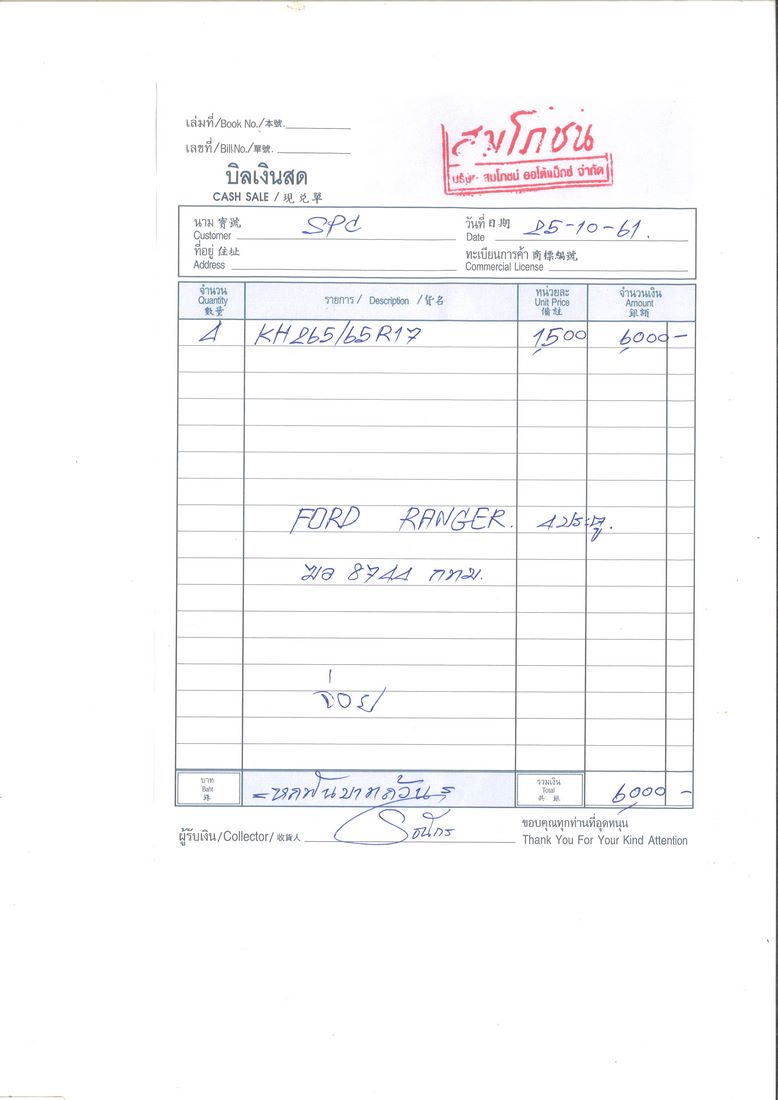 เล่มที่/Book No./本號.
เลขที่/Bill No./單號.
บิลเงินสด
CASH SALE / 現兑單
สมโภชน์
บริษัท สมโภชน์ ออโต้แม็กซ์ จำกัด
นาม 寶號 Customer SPC วันที่ 日期 Date 25-10-61.
ที่อยู่ 住址 Address ทะเบียนการค้า 商標編號 Commercial License
จำนวน Quantity 數量 รายการ / Description / 貨名 หน่วยละ Unit Price 備註 จำนวนเงิน Amount 銀額
4 KH 265/65R17 1,500 6,000 -
FORD RANGER. 4ประตู.
ฒอ 8744 กทม.
จ่อย
บาท Baht 銖 = หกพันบาทถ้วน = รวมเงิน Total 共銀 6,000 -
ผู้รับเงิน/Collector/收貨人 ธนกร
ขอบคุณทุกท่านที่อุดหนุน
Thank You For Your Kind Attention